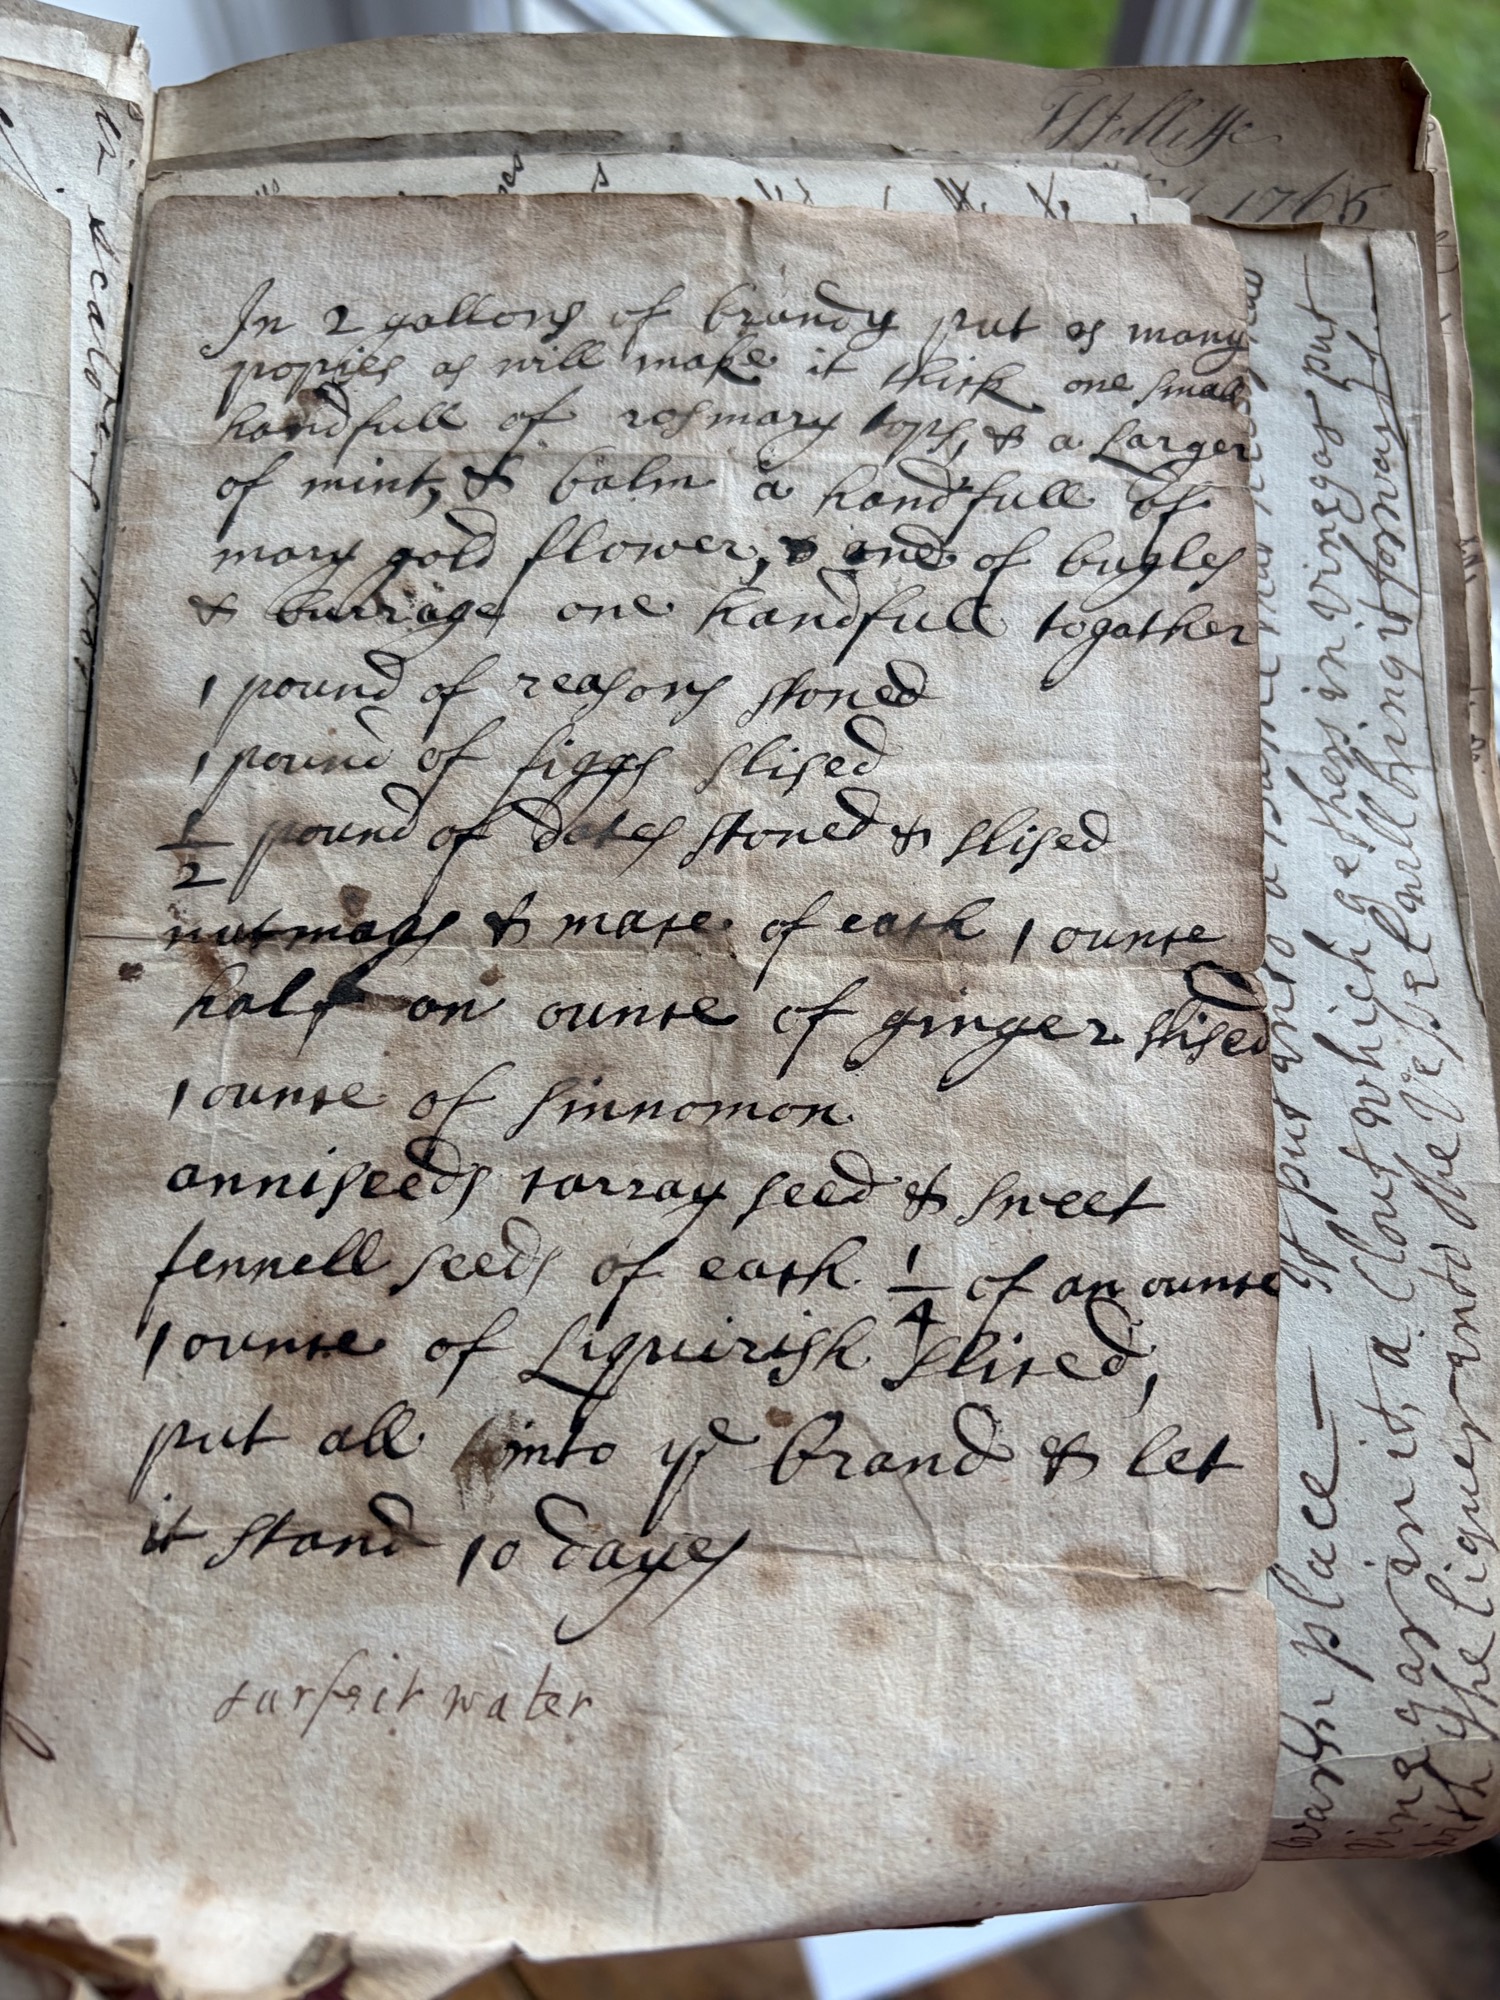 In 2 gallons of brandy put as many
popies as will make it thick one small
handfull of rosmary tops, & a Larger
of mint, & balm a handfull of
mary gold flower, & one of bugles
& burrage one handfull togather
1 pound of reasons stoned
1 pound of figgs slised
1/2 pound of dates stoned & slised
nutmags & mace of each 1 ounce
half an ounce of ginger slised
1 ounce of sinnomon
anniseeds carray seed & sweet
fennell seeds of each 1/4 of an ounce
1 ounce of Liquirish sliced,
put all into ye brand & let
it stand 10 days
surfeit water
1765
warm place —
If put
ving gar in it, a Clout which gethers in vinegar put
with the liquer unto the Vessel will bring it forwards
in scalding